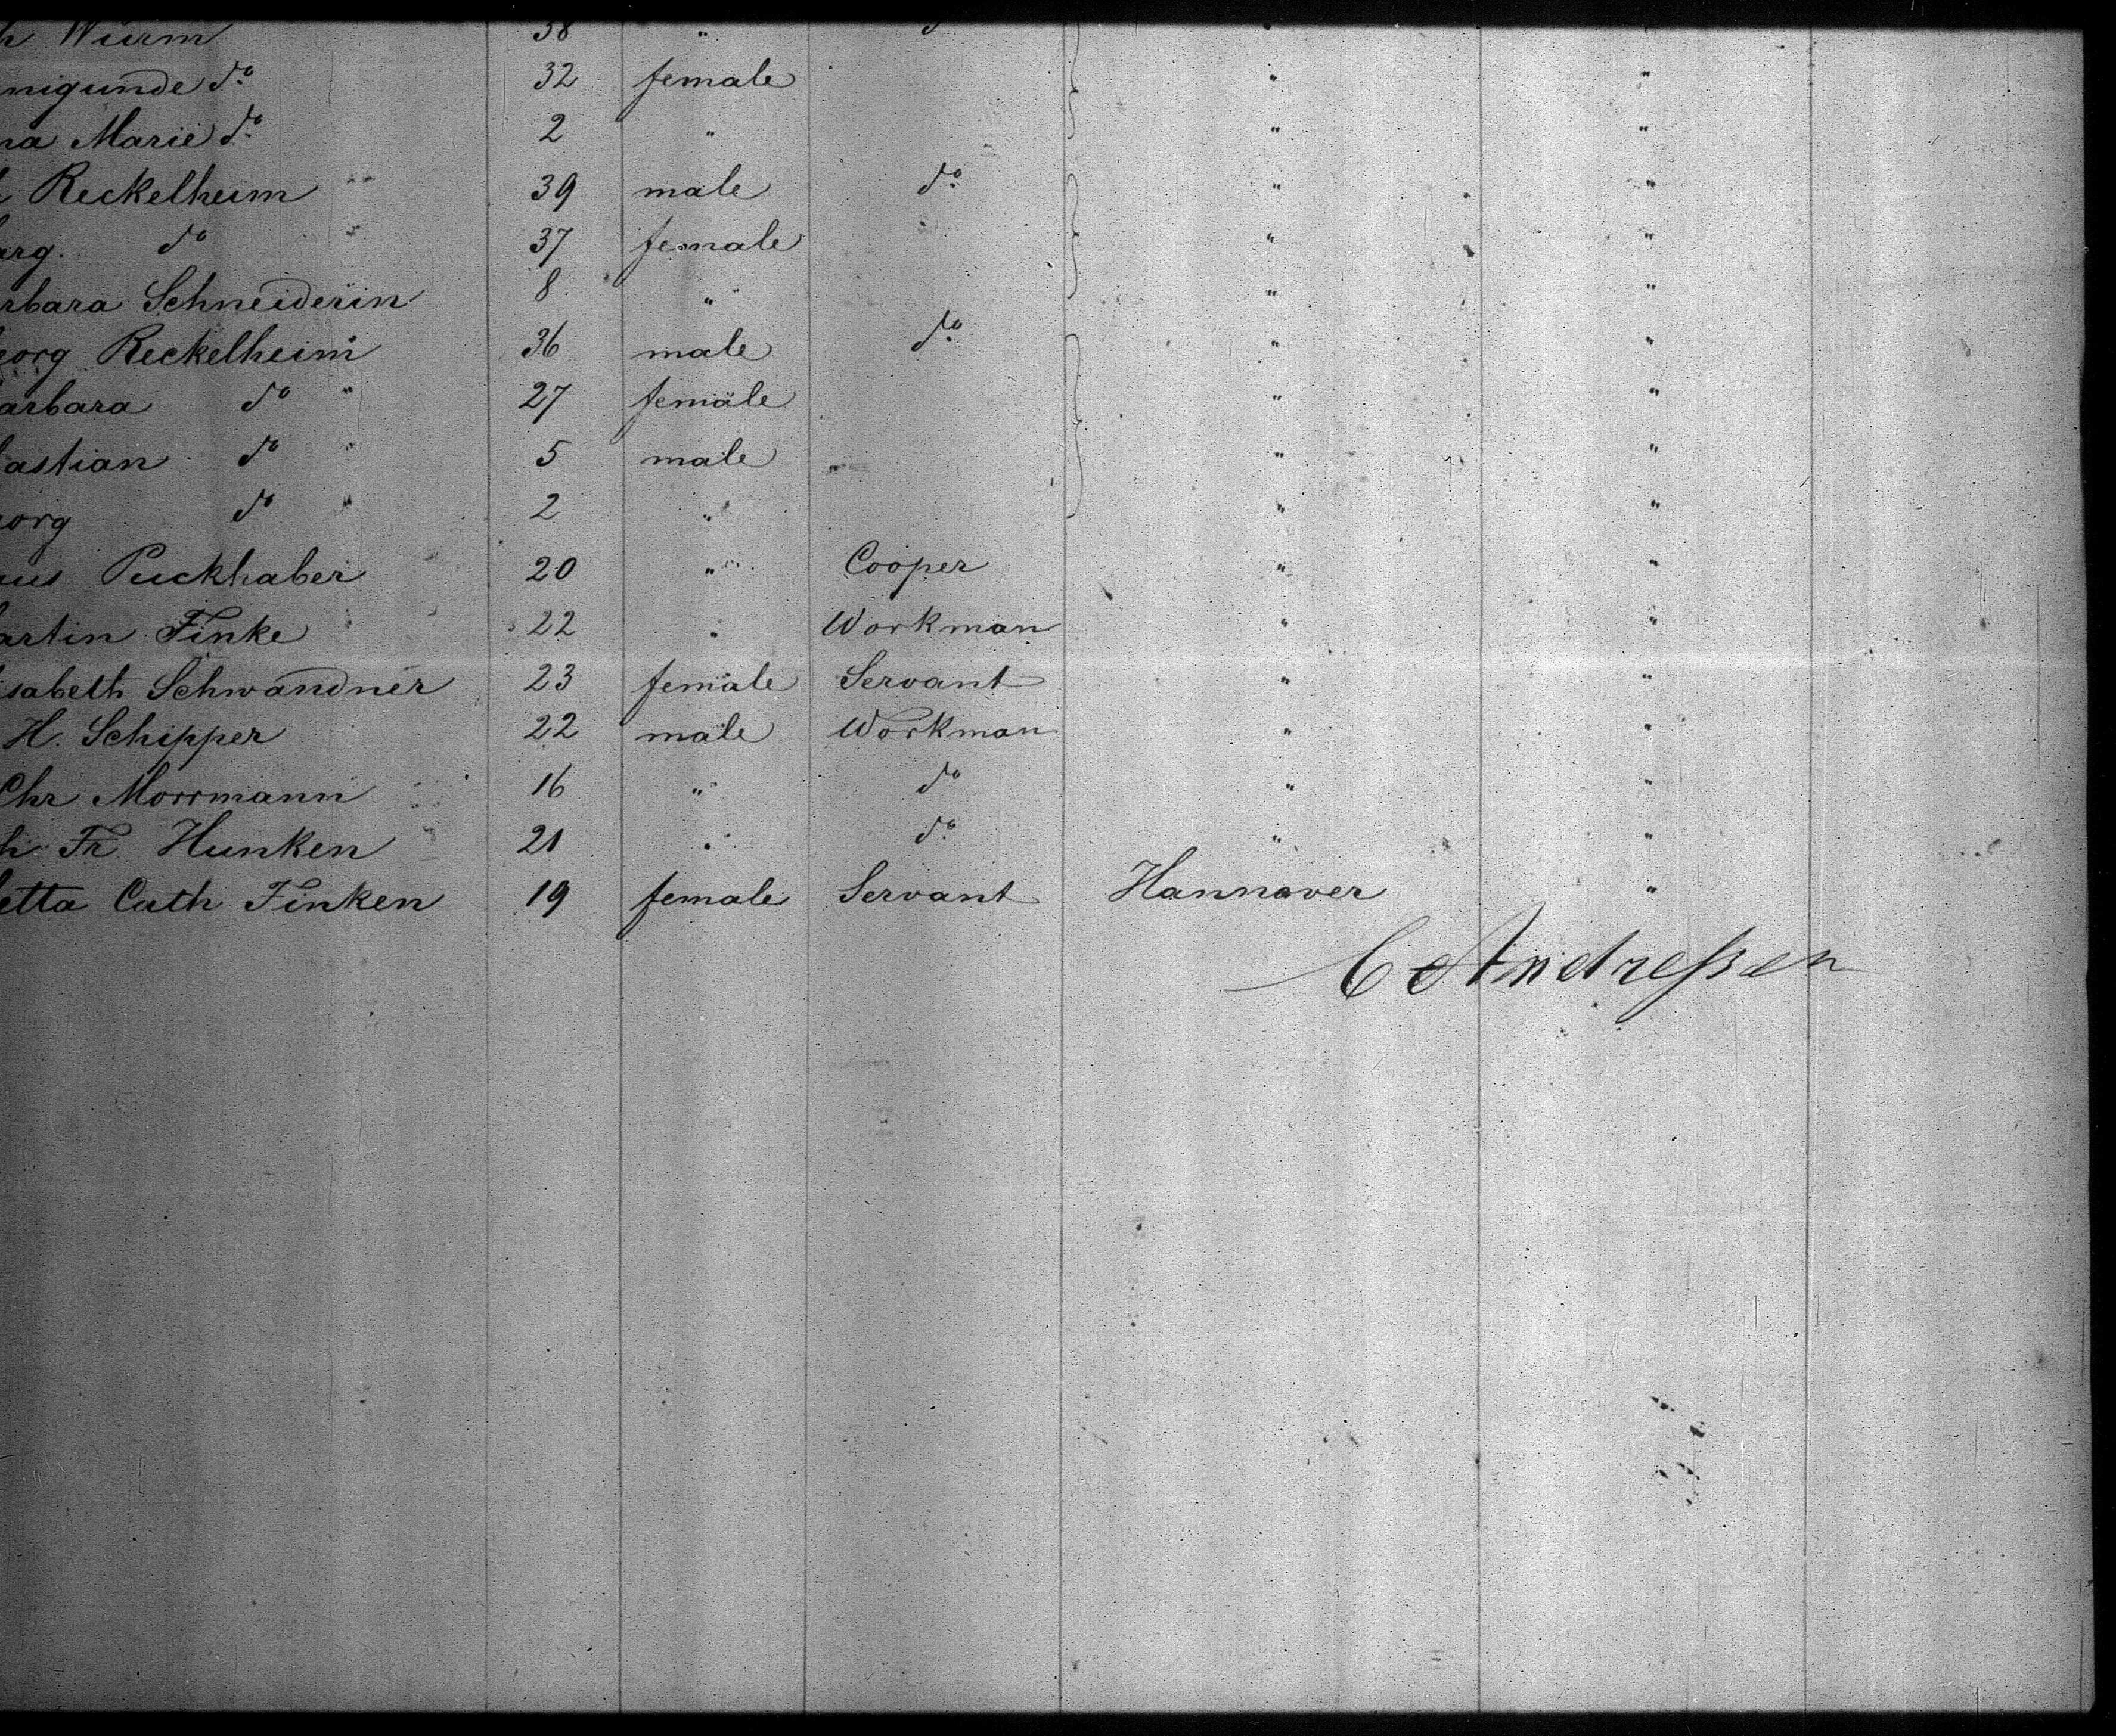 h Wurm 38 " do
nigunde do 32 female " "
na Marie do 2 " " "
Reckelheim 39 male do " "
arg. do 37 female " "
rbara Schneiderin 8 " " "
eorg Reckelheim 36 male do " "
arbara do 27 female " "
bastian do 5 male " "
eorg do 2 " " "
us Puckhaber 20 " Cooper " "
artin Finke 22 " Workman " "
isabeth Schwandner 23 female Servant " "
H. Schipper 22 male Workman " "
Chr Morrmann 16 " do " "
h Fr. Hunken 21 " do " "
etta Cath Finken 19 female Servant Hannover "
C Andreßen